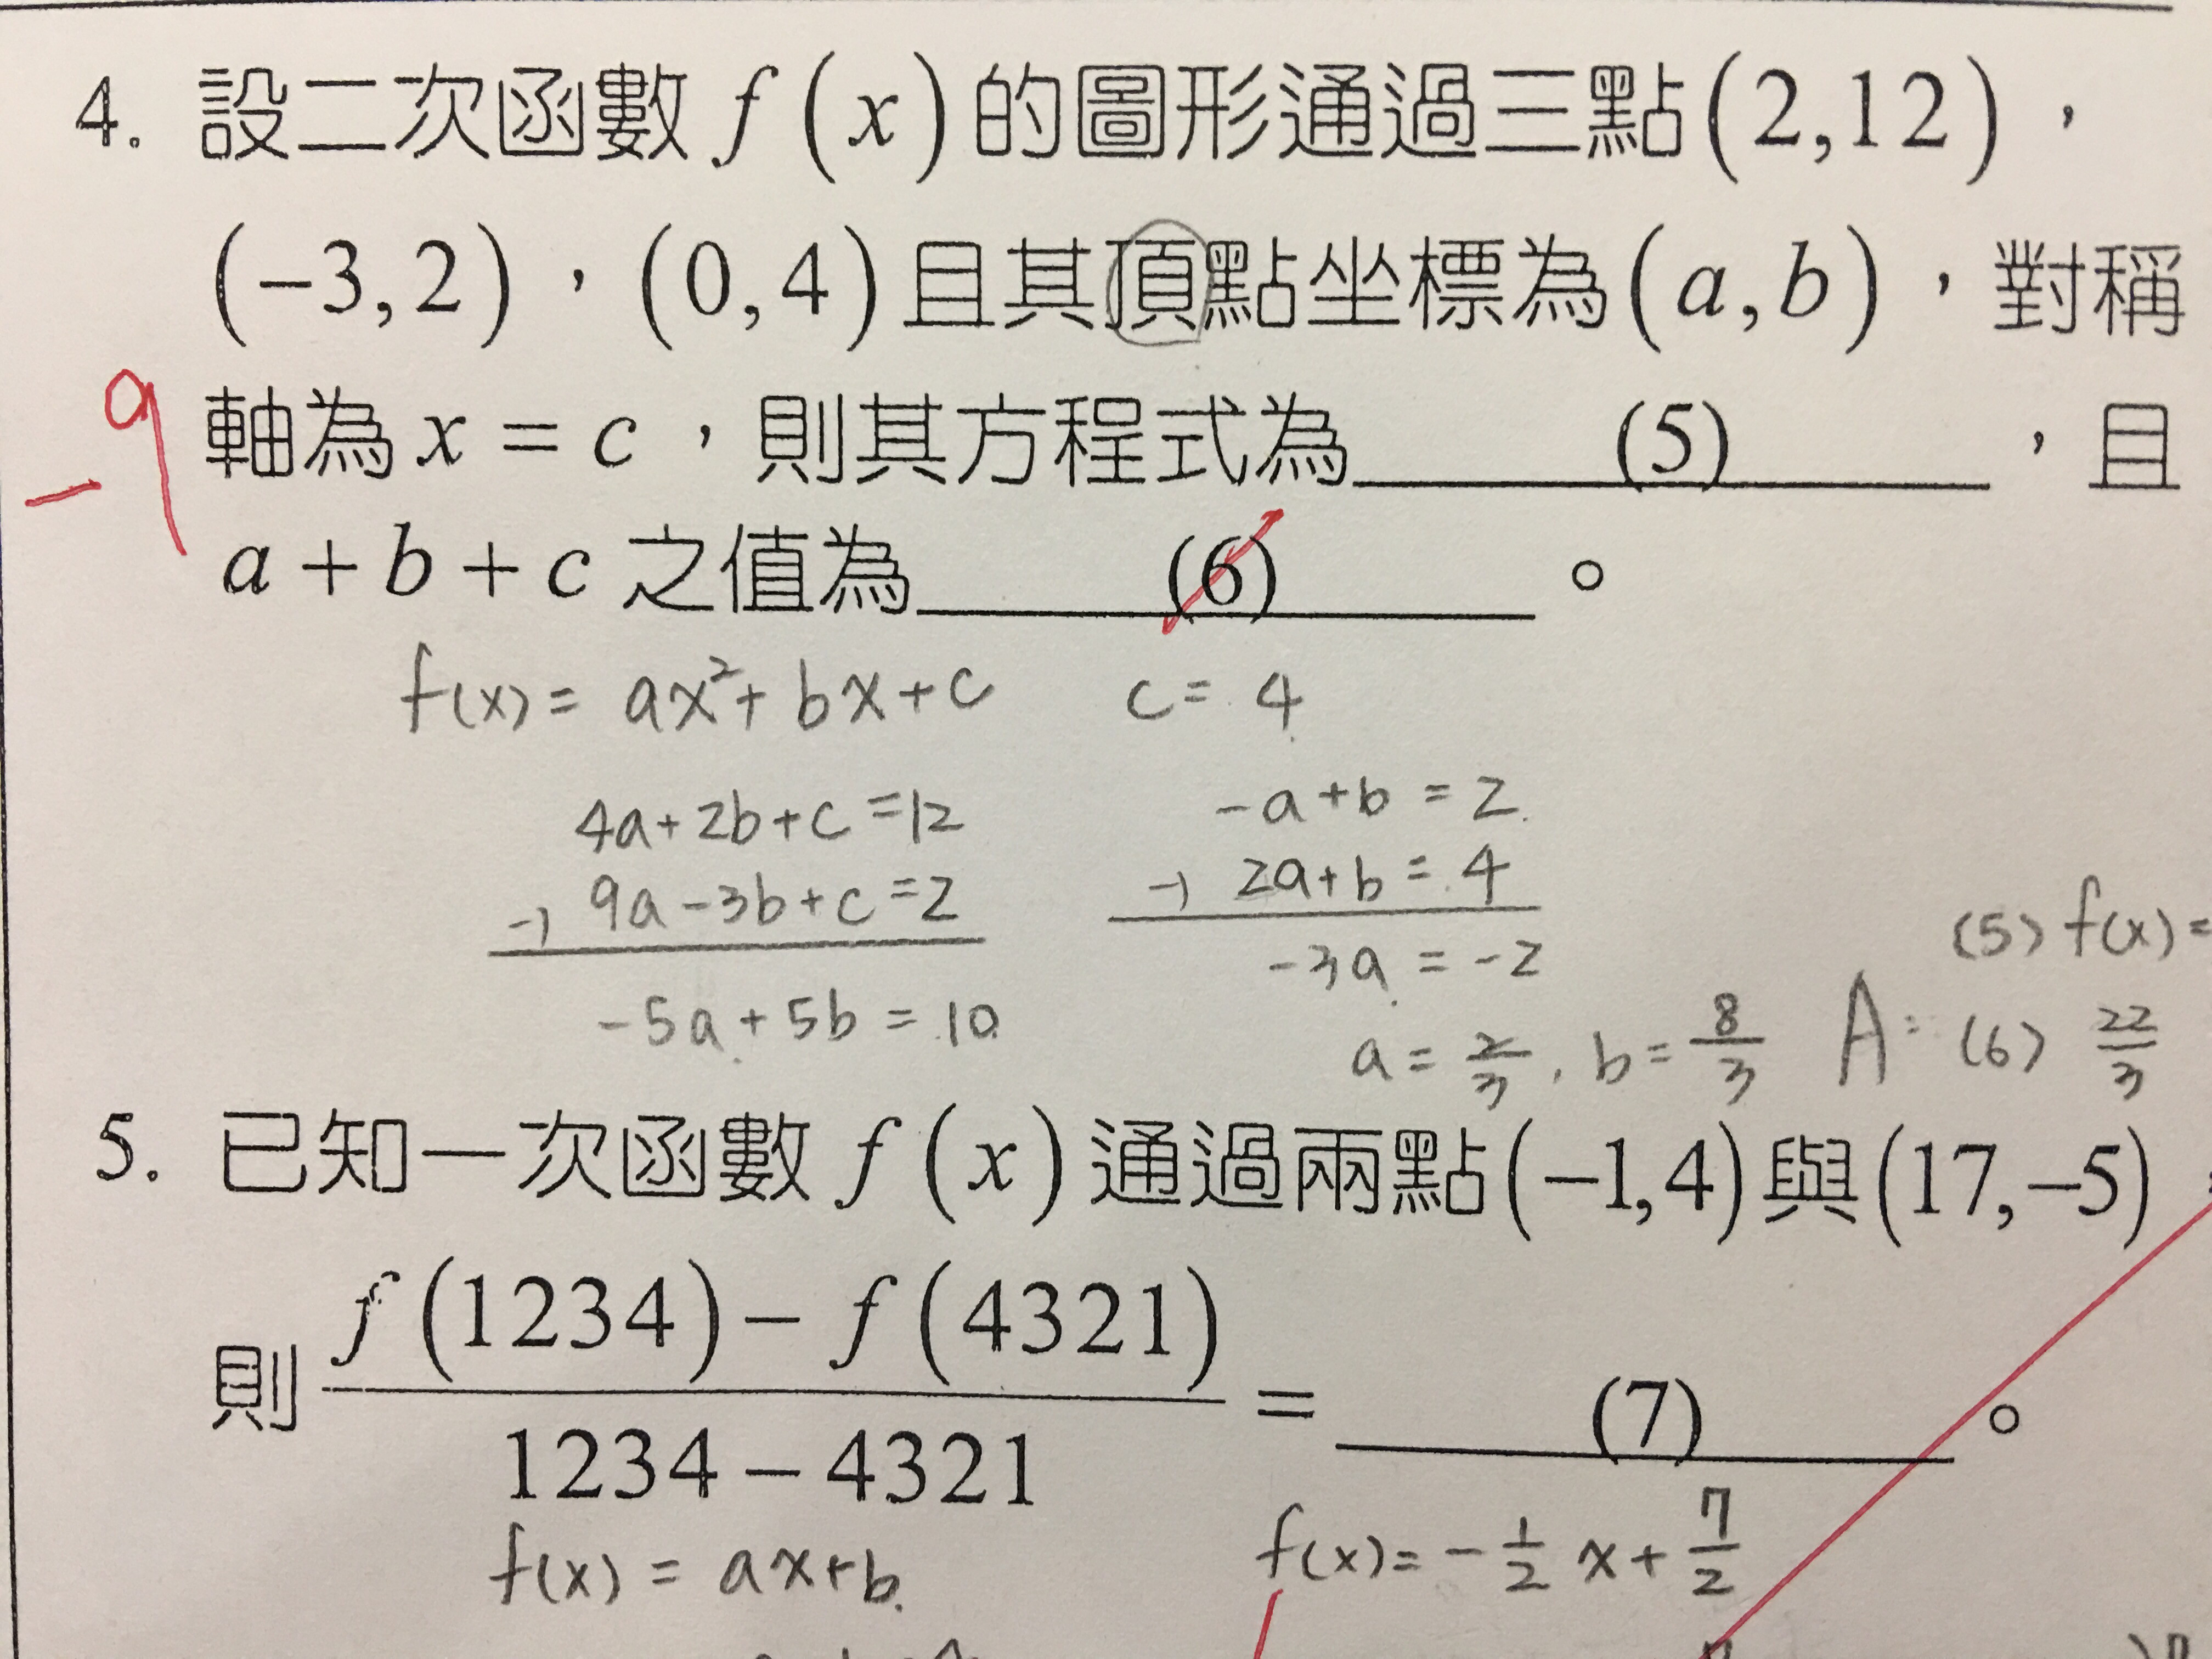 4. 設二次函數 f(x) 的圖形通過三點(2,12),
(-3,2),(0,4)且其頂點坐標為(a,b),對稱
-9
軸為 x = c,則其方程式為 (5) ,且
a + b + c 之值為 (6) 。
f(x) = ax²+ bx+c c = 4
4a+2b+c =12 -a+b = 2
-) 9a-3b+c =2 -) 2a+b = 4
-5a+5b = 10 -3a = -2
(5) f(x) =
a = 2/3, b = 8/3 A: (6) 22/3
5. 已知一次函數 f(x) 通過兩點(-1,4)與(17,-5),
則 f(1234) - f(4321) / 1234 - 4321 = (7) 。
f(x) = ax+b f(x) = -1/2 x + 7/2